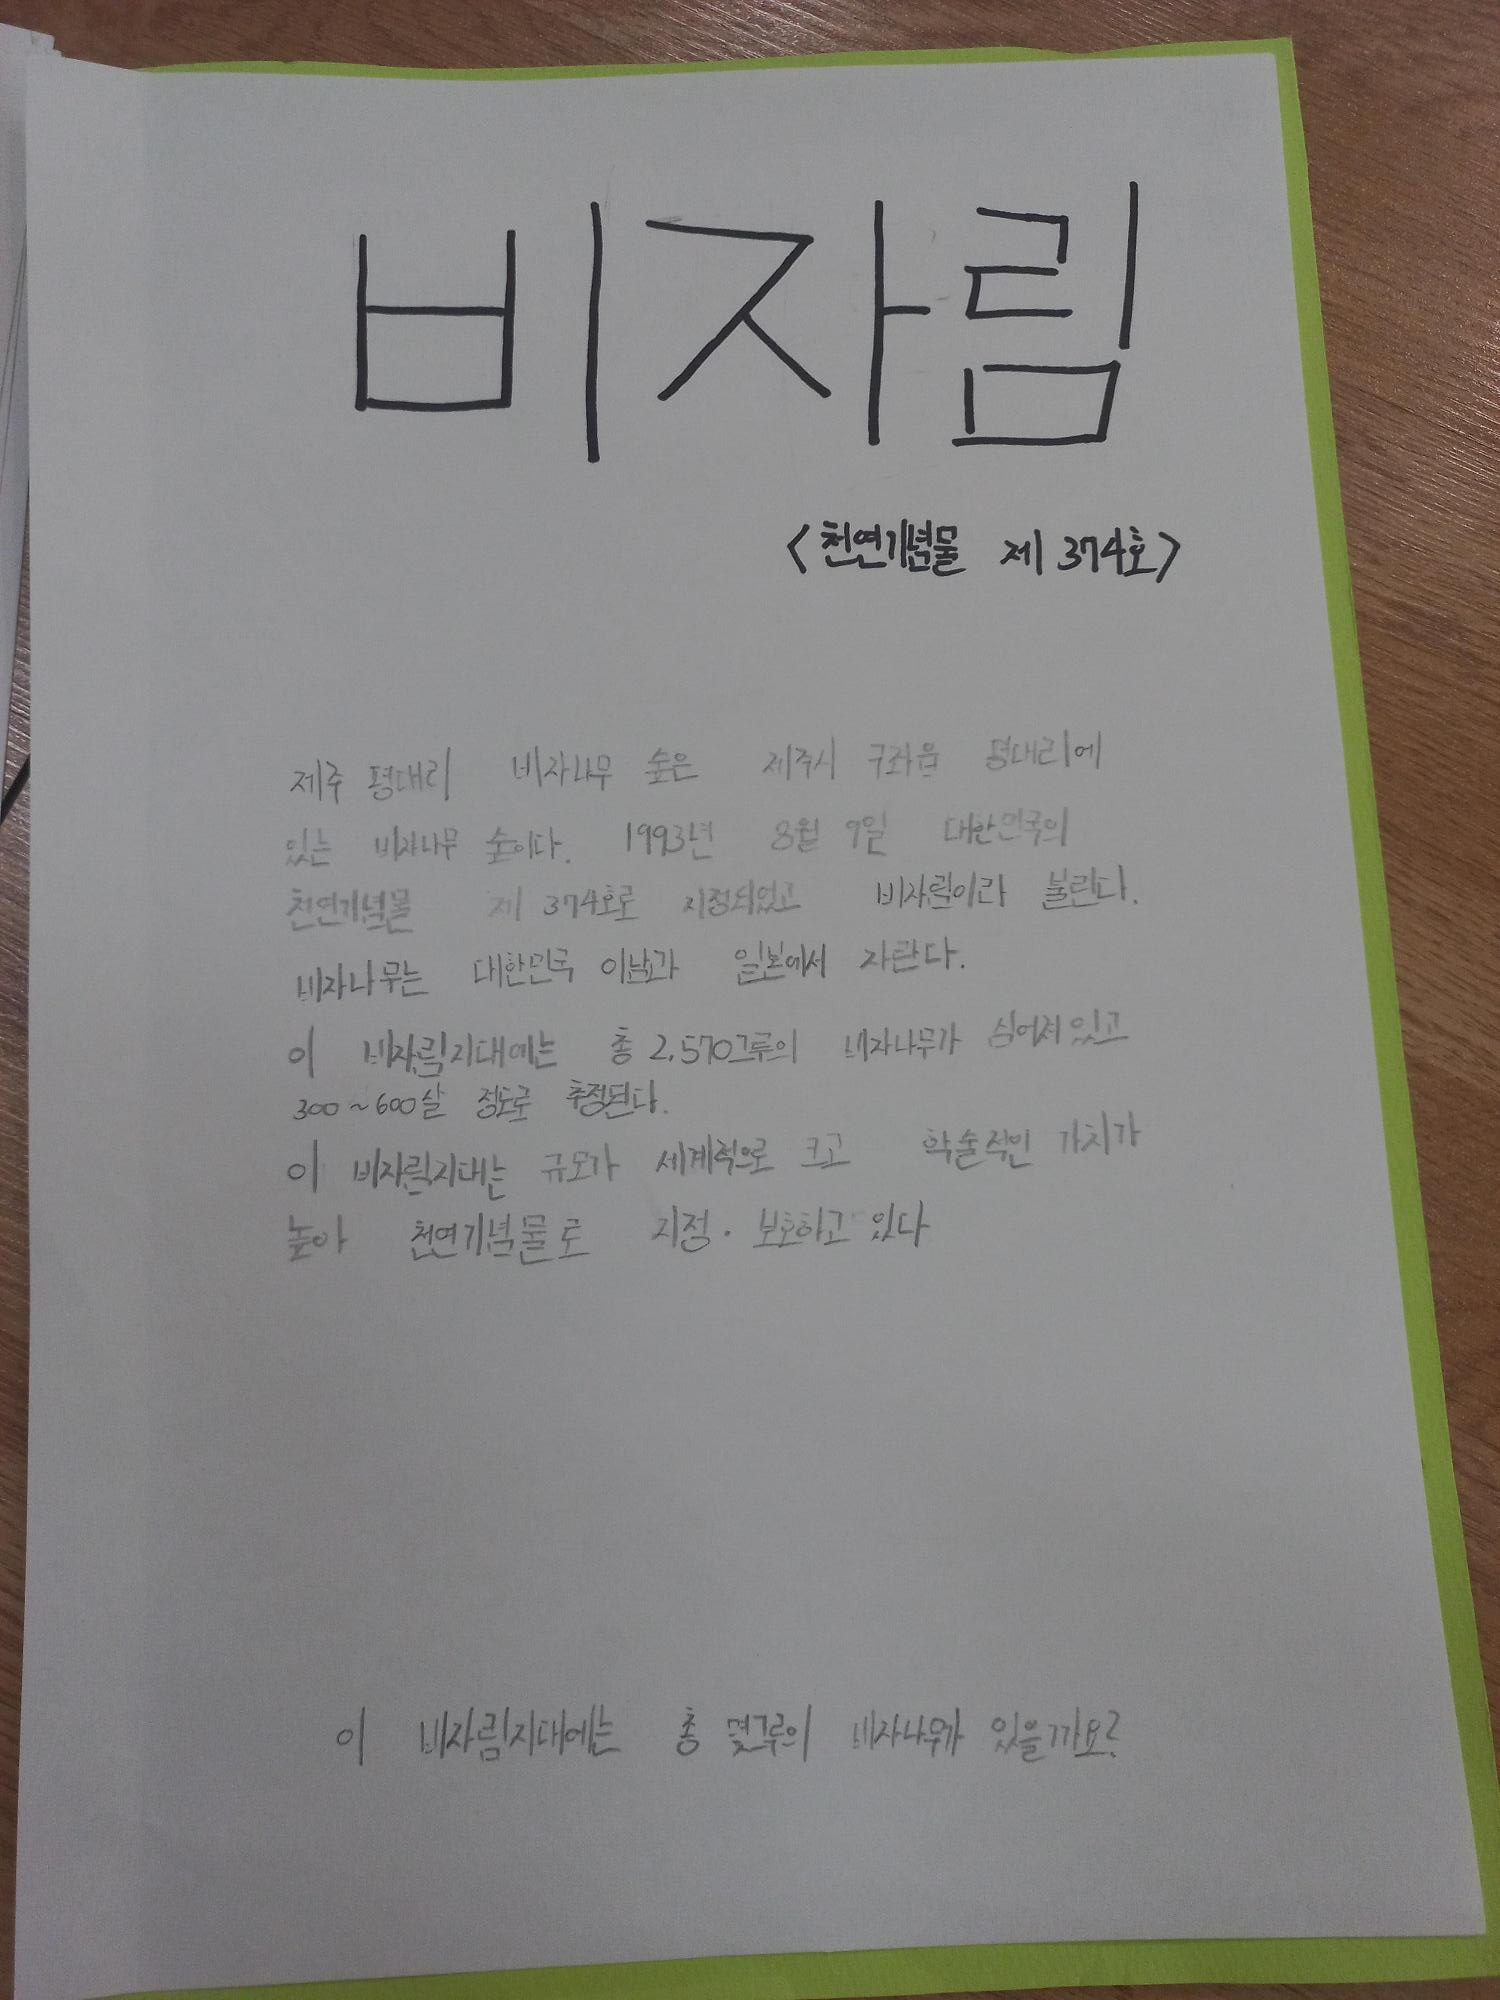 비자림
<천연기념물 제 374호>
제주 평대리 비자나무 숲은 제주시 구좌읍 평대리에
있는 비자나무 숲이다. 1993년 8월 9일 대한민국의
천연기념물 제 374호로 지정되었고 비자림이라 불린다.
비자나무는 대한민국 이남과 일본에서 자란다.
이 비자림지대에는 총 2,570그루의 비자나무가 심어져있고
300~600살 정도로 추정된다.
이 비자림지대는 규모가 세계적으로 크고 학술적인 가치가
높아 천연기념물로 지정·보호하고 있다
이 비자림지대에는 총 몇그루의 비자나무가 있을까요?